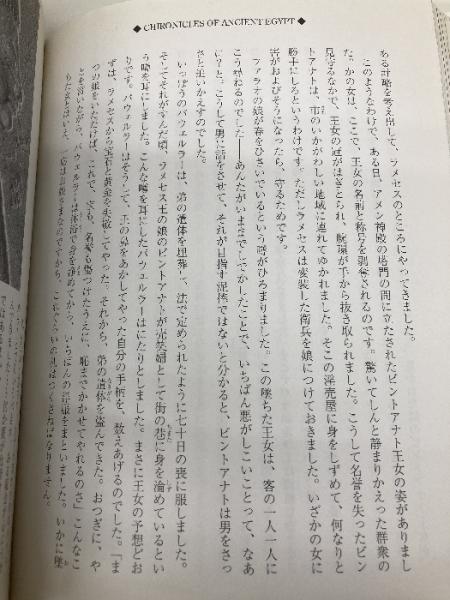 ◆ CHRONICLES OF ANCIENT EGYPT ◆
ある計略を考え出して、ラメセスのところにやってきました。
このようなわけで、ある日、アメン神殿の塔門の間に立たされたビントアナト王女の姿がありまし
た。かの女は、ここで、王女の名前と称号を剥奪されるのです。驚いてしんと静まりかえった群衆の
見守るなかで、王女の冠がはぎとられ、腕環が手から抜き取られました。こうして名誉を失ったビン
トアナトは、市のいかがわしい地域に連れてゆかれました。そこの淫売屋に身をしずめて、何なりと
勝手にしろというわけです。ただしラメセスは変装した衛兵を娘につけておきました。いざかの女に
害がおよびそうになったら、守るためです。
ファラオの娘が春をひさいでいるという噂がひろまりました。この墜ちた王女は、客の一人一人に
こう尋ねるのでした──あんたがいままでしでかしたことで、いちばん悪がしこいことって、なあ
に？と。こうして男に話をさせて、それが目指す泥棒ではないと分かると、ビントアナトは男をさっ
さと追いかえすのでした。
いっぽうのパウェルラーは、弟の遺体を埋葬して、法で定められたように七十日の喪に服しました。
そしてそれがすんだ頃、ラメセス王の娘のビントアナトが売笑婦として街の巷に身を淪めているとい
う噂を耳にしました。こんな噂を耳にしたパウェルラーはにたりとしました。まさに王女の予想どお
りです。パウェルラーはそうして、王の鼻をあかしてやった自分の手柄を、数えあげるのでした。「ま
ずは、ラメセスから宝石と黄金を失敬してやった。それから、弟の遺体を盗んできた。おつぎに、や
つの娘をいただけば、これで、王も、名誉も傷つけたうえに、恥までかかせてやれるのさ」こんなこ
とを言いながら、パウェルラーは沐浴で身を浄めてから、いちばんの晴服をまといました。いかに墜
ちたとはいえ、一応はお姫さまなのですから、これくらいの礼はつくさねばなりません。